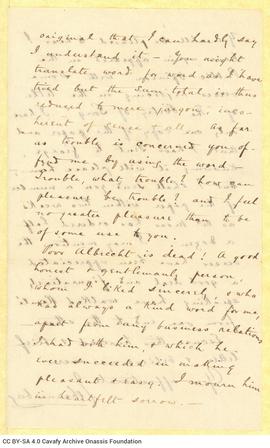 original that I can hardly say
I understand it — You might
translate word for word as I have
tried but the sum total is thus
reduced to mere jargon, inco-
herent of sense at all. As far
as trouble is concerned you of-
fend me by using the word —
Trouble, what trouble? how can
pleasure be trouble? and I feel
no greater pleasure than to be
of some use to you.
Poor Albrecht is dead! A good
honest & gentlemanly person
whom I liked sincerely & who
had always a kind word for me,
apart from any business relations
I had with him, & which he
ever succeeded in making
pleasant & easy. I mourn him
in heartfelt sorrow. —
CC BY-SA 4.0 Cavafy Archive Onassis Foundation